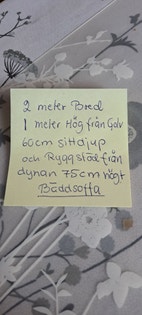 2 meter Bred
1 meter Hög från Golv
60cm sittdjup
och Ryggstöd från
dynan 75cm högt
Bäddsoffa